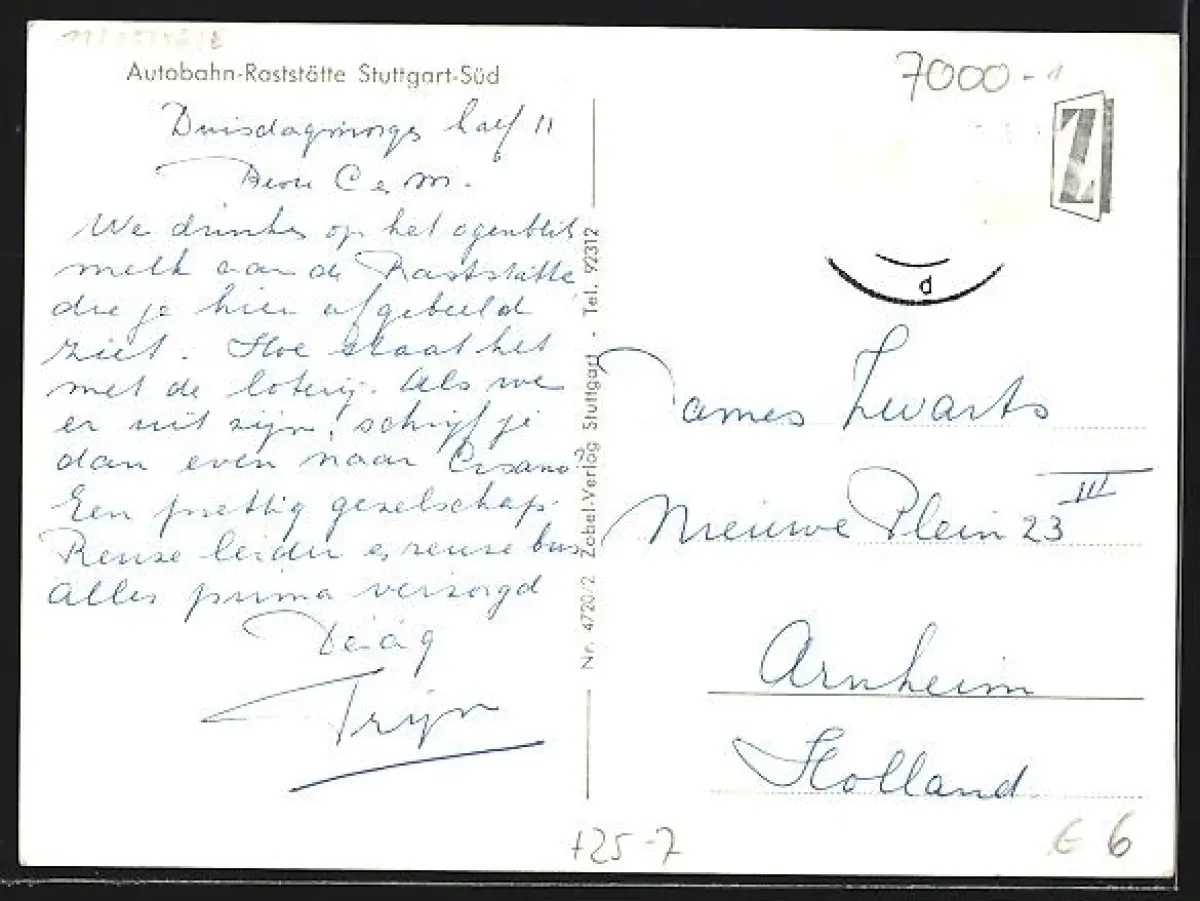 Autobahn-Raststätte Stuttgart-Süd
Dinsdagmorge half 11
C e m.
We drinken op het ogenblik
melk aan de Raststätte
die je hier afgebeeld
ziet. Hoe staat het
met de loterij. Als we
er uit zijn, schrijf je
dan even naar Cusano?
Een prettig gezelschap.
Reuse leider e reuse bus
Alles prima verzorgd
Trijn
Nr. 4720/2 Zobel-Verlag Stuttgart - Tel. 92312
7000-1
Z
d
James Zwarts
Nieuwe Plein 23 III
Arnheim
Holland
+25-7
€ 6